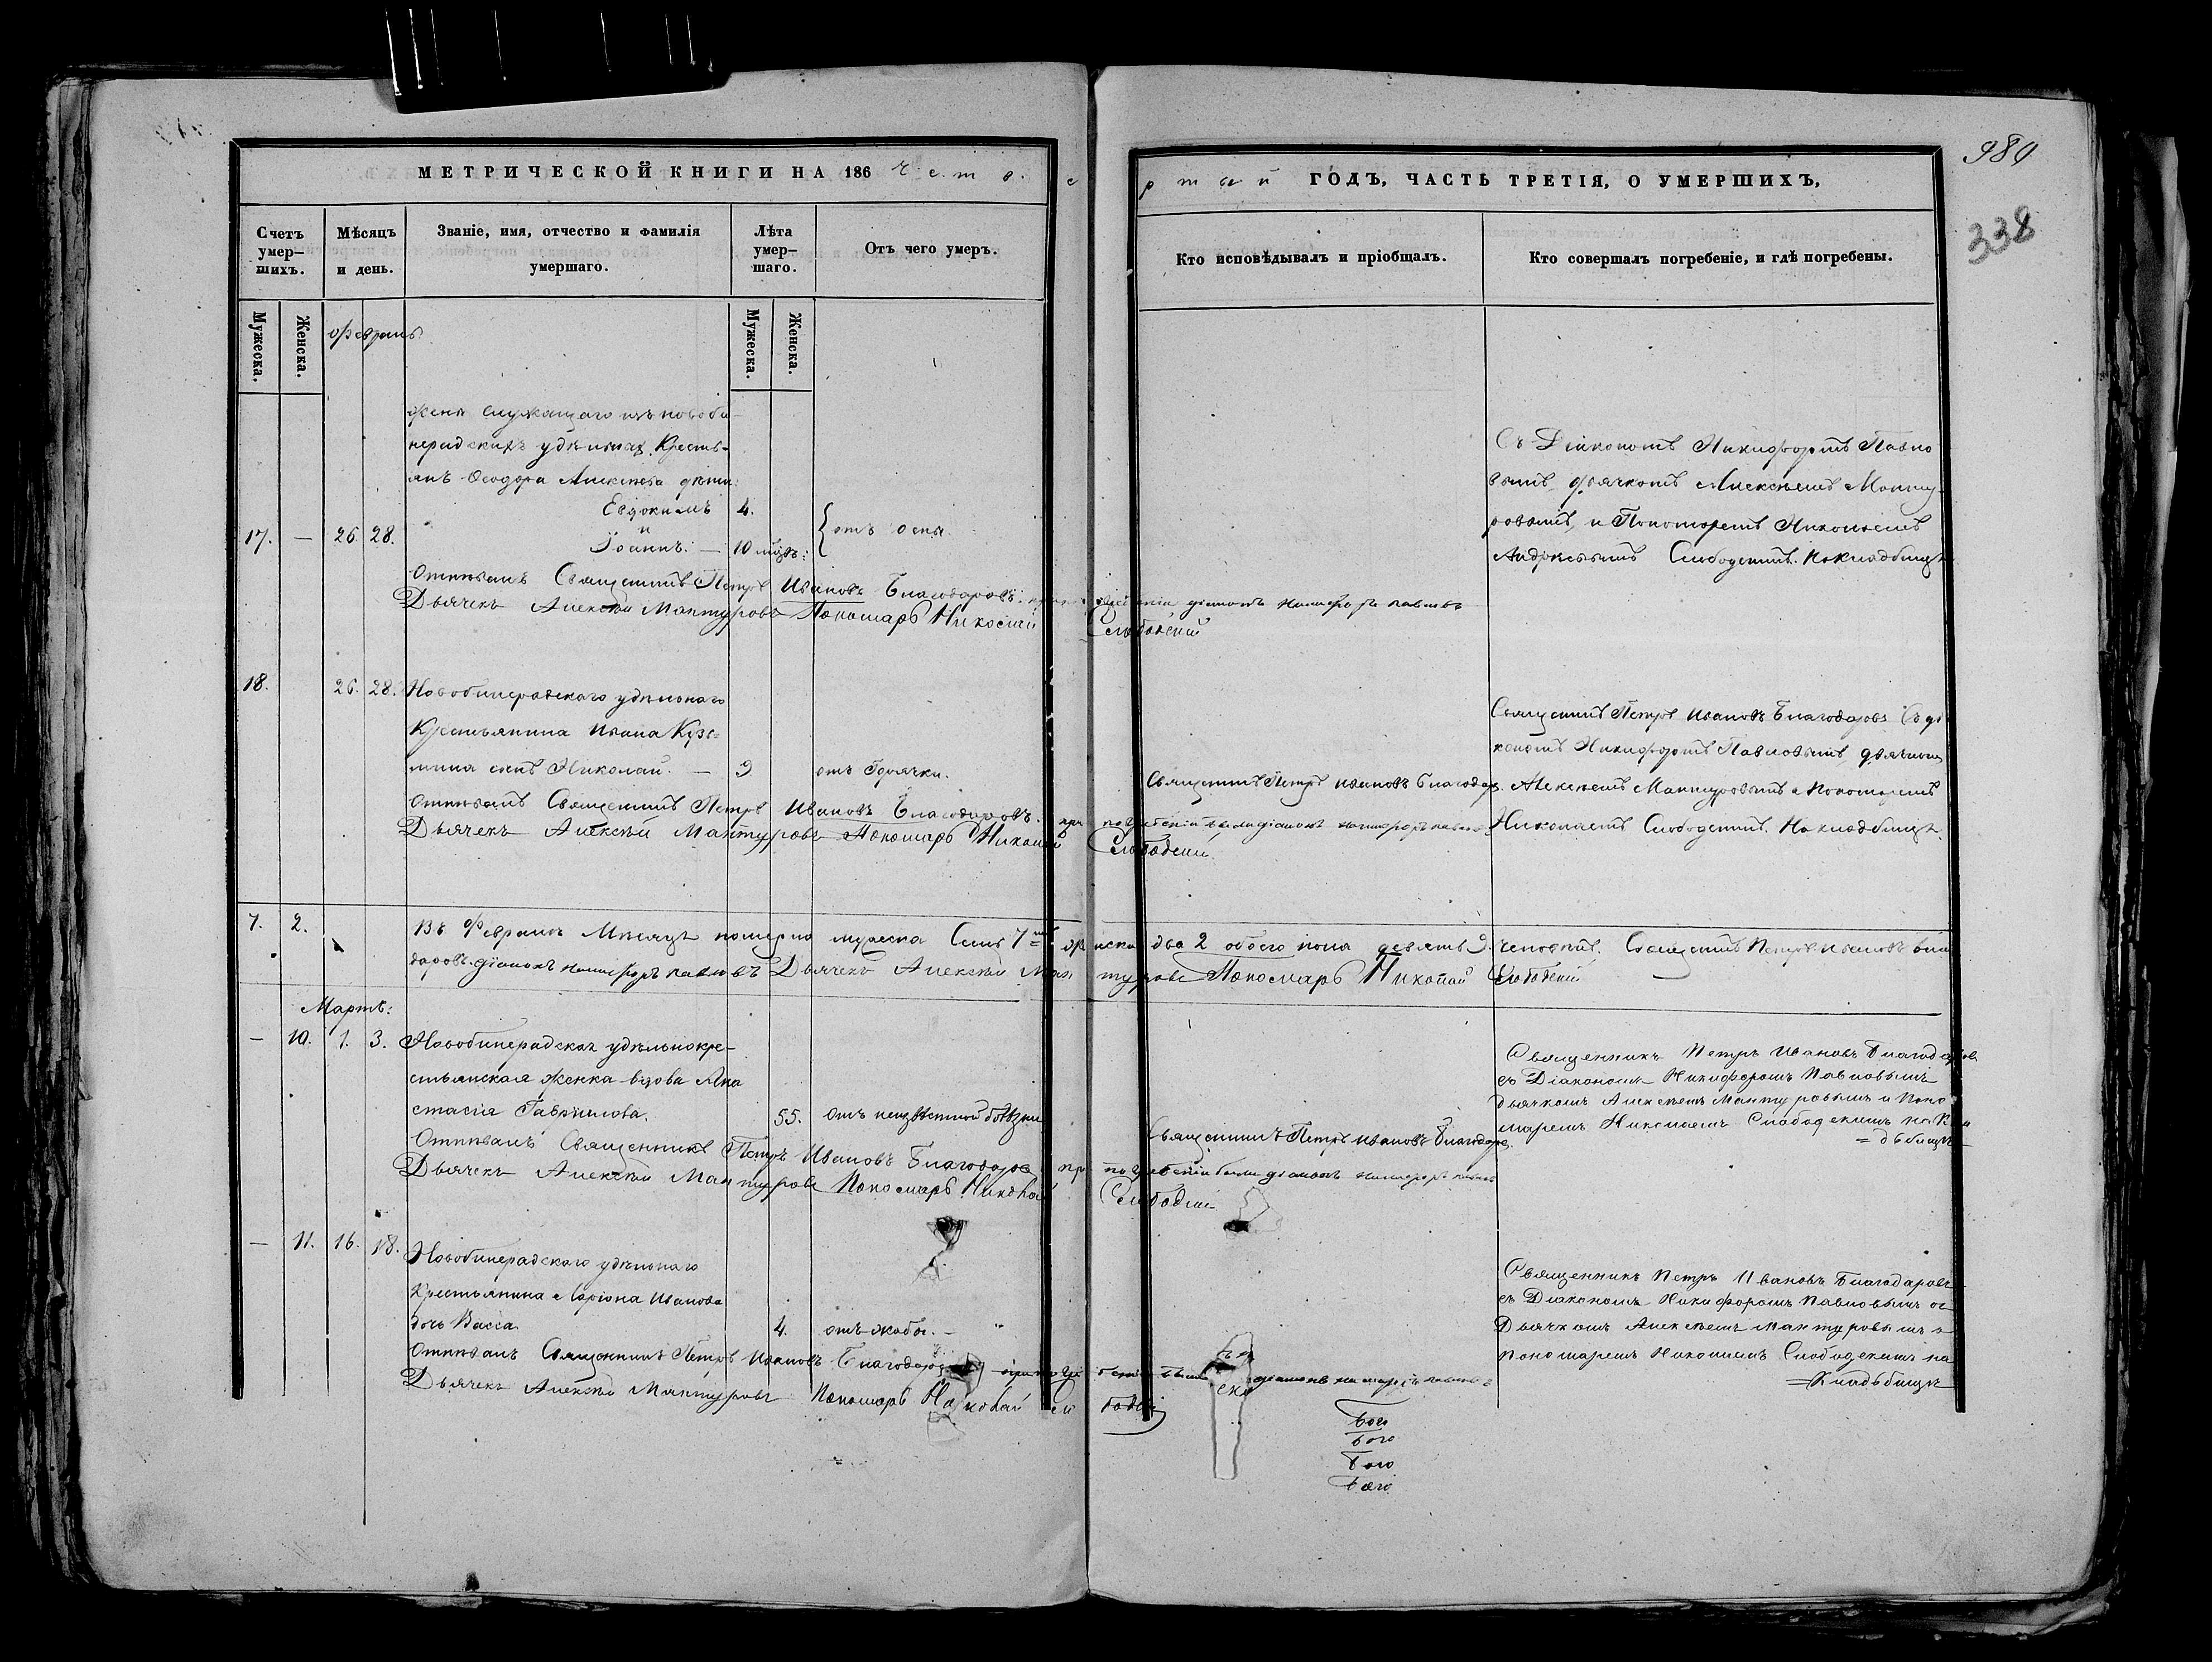 МЕТРИЧЕСКОЙ КНИГИ НА 186 четвертый ГОДЪ, ЧАСТЬ ТРЕТІЯ, О УМЕРШИХЪ.
989
338
Счетъ умер-шихъ.
Мѣсяцъ и день.
Званіе, имя, отчество и фамилія умершаго.
Лѣта умер-шаго.
Отъ чего умеръ.
Кто исповѣдывалъ и пріобщалъ.
Кто совершалъ погребеніе, и гдѣ погребены.
Мужеска.
Женска.
Мужеска.
Женска.
Февраль
жены служащаго изъ новоби-
нерадскихъ удѣльныхъ Кресть-
янъ Ѳеодора Алексѣева дѣти:
Евдокимъ 4.
и
17. — 26 28. Іоаннъ. — 10 отъ оспы
Съ Діакономъ Никифоромъ Павло
вымъ, дьячкомъ Алексѣемъ Манту-
ровымъ, и Пономаремъ Николаемъ
Слободскимъ. На кладбищѣ
Отпѣвалъ Священникъ Петръ Ивановъ Благодаровъ. діаконъ Никифоръ Павловъ
Дьячекъ Алексѣй Мантуровъ Пономарь Николай Слободской
18. 26. 28. Новобинерадскаго удѣльнаго
Крестьянина Ивана Кузь-
мина сынъ Николай. — 9 отъ Горячки.
Священникъ Петръ Ивановъ Благодар.
Священникъ Петръ Ивановъ Благодаровъ Съ ді
кономъ Никифоромъ Павловымъ дьячкомъ
Алексѣемъ Мантуровымъ и Пономаремъ
Николаемъ Слободскимъ. На кладбищѣ.
Отпѣвалъ Священникъ Петръ Ивановъ Благодаровъ. при погребеніи были діаконъ Никифоръ Павловъ
Дьячекъ Алексѣй Мантуровъ Пономарь Николай Слободской
7. 2. Въ Февралѣ Мѣсяцѣ померло мужеска Семь 7 женска два 2 обоего пола девять 9. человѣкъ. Священникъ Петръ Ивановъ Благо
даровъ. діаконъ Никифоръ Павловъ Дьячекъ Алексѣй Мантуровъ Пономарь Николай Слободской
Мартъ:
— 10. 1. 3. Новобинерадская удѣльнокре-
стьянская женка вдова Ана
стасія Гаврилова. 55. отъ неизвѣстной болѣзни
Священникъ Петръ Ивановъ Благодаров.
Священникъ Петръ Ивановъ Благодаровъ
съ Діакономъ Никифоромъ Павловымъ
дьячкомъ Алексѣемъ Мантуровымъ и Поно
маремъ Николаемъ Слободскимъ на Кла
=дбищѣ=
Отпѣвалъ Священникъ Петръ Ивановъ Благодаров при погребеніи были діаконъ Никифоръ Павловъ
Дьячекъ Алексѣй Мантуровъ Пономарь Николай Слободской
— 11. 16. 18. Новобинерадскаго удѣльнаго
Крестьянина Ларіона Иванова
дочь Васса 4. отъ жабы. —
Священникъ Петръ Ивановъ Благодаровъ
съ Діакономъ Никифоромъ Павловымъ
Дьячкомъ Алексѣемъ Мантуровымъ и
пономаремъ Николаемъ Слободскимъ на
=Кладбищѣ
Отпѣвалъ Священникъ Петръ Ивановъ Благодаров при погребеніи были діаконъ Павловъ
Дьячекъ Алексѣй Мантуровъ Пономарь Николай Слободской
Бого
Бого
Бого
Бого